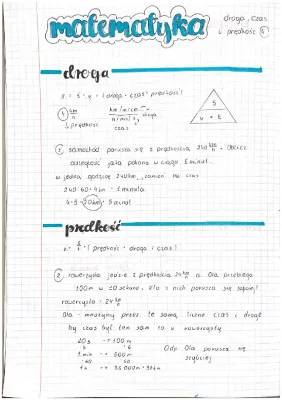 matematyka
droga, czas
i prędkość
droga
s = s · v = ( droga = czas · prędkość )
km
h
km/m/cm
h/min/s
droga
↓ prędkość
czas
s
v = t
1 samochód porusza się z prędkością 240 km/h. Oblicz
odległość jaką pokona w ciągu 5 minut.
w jedną godzinę 240 km, zamień na czas
240 : 60 = 4 km = 1 minuta
4 · 5 = 20 km / 5 minut
prędkość
v = s/t ( prędkość = droga : czas )
2 rowerzysta jedzie z prędkością 24 km/h a Ola przebiega
100 m w 10 sekund. Kto z nich porusza się szybciej?
rowerzysta = 24 km/h
Ola - mnożymy przez tę samą liczbę czas i drogę
by czas był ten sam co u rowerzysty
10 s → 100 m
· 6 · 6
1 min → 600 m
· 60 · 60
1 h → 36 000 m = 36 km
Odp. Ola porusza się
szybciej